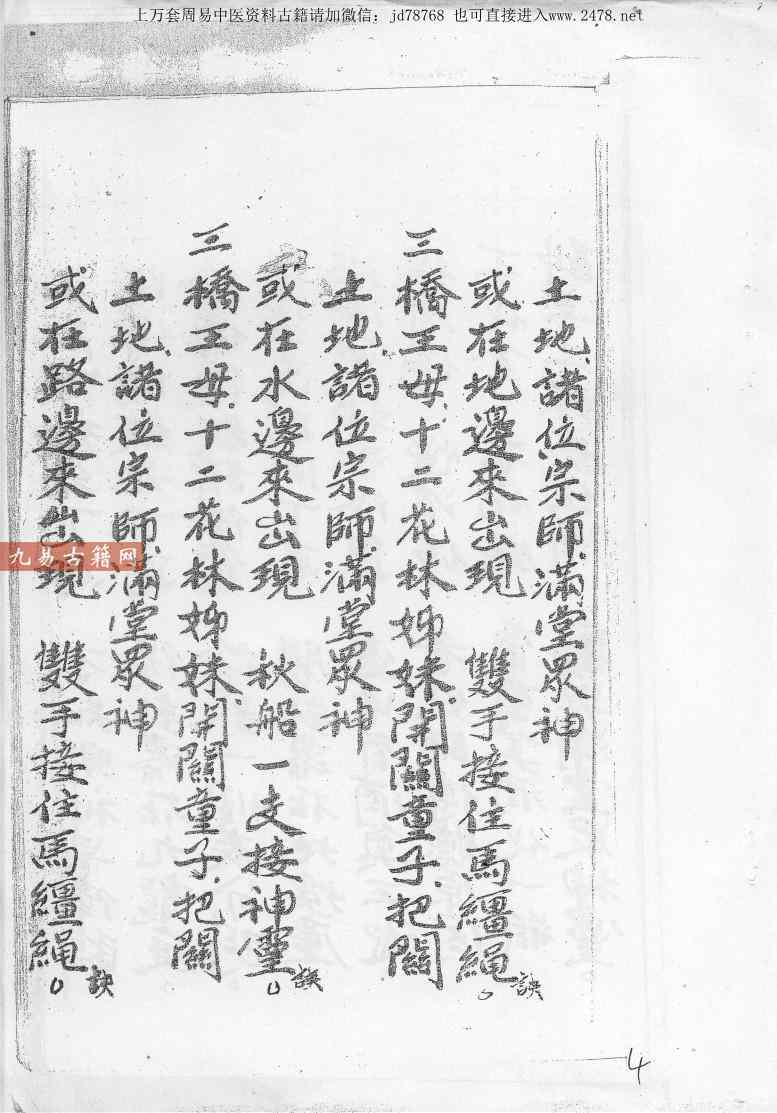 上万套周易中医资料古籍请加微信：jd78768 也可直接进入www.2478.net
土地、諸位宗師、滿堂眾神
或在地邊來出現　雙手接住馬繮繩。訣
三橋王母、十二花林姊妹、開關童子、把關
土地、諸位宗師、滿堂眾神
或在水邊來出現　秋船一支接神靈。訣
三橋王母、十二花林姊妹、開關童子、把關
土地、諸位宗師、滿堂眾神
或在路邊來出現　雙手接住馬繮繩。訣
九易古籍网
4